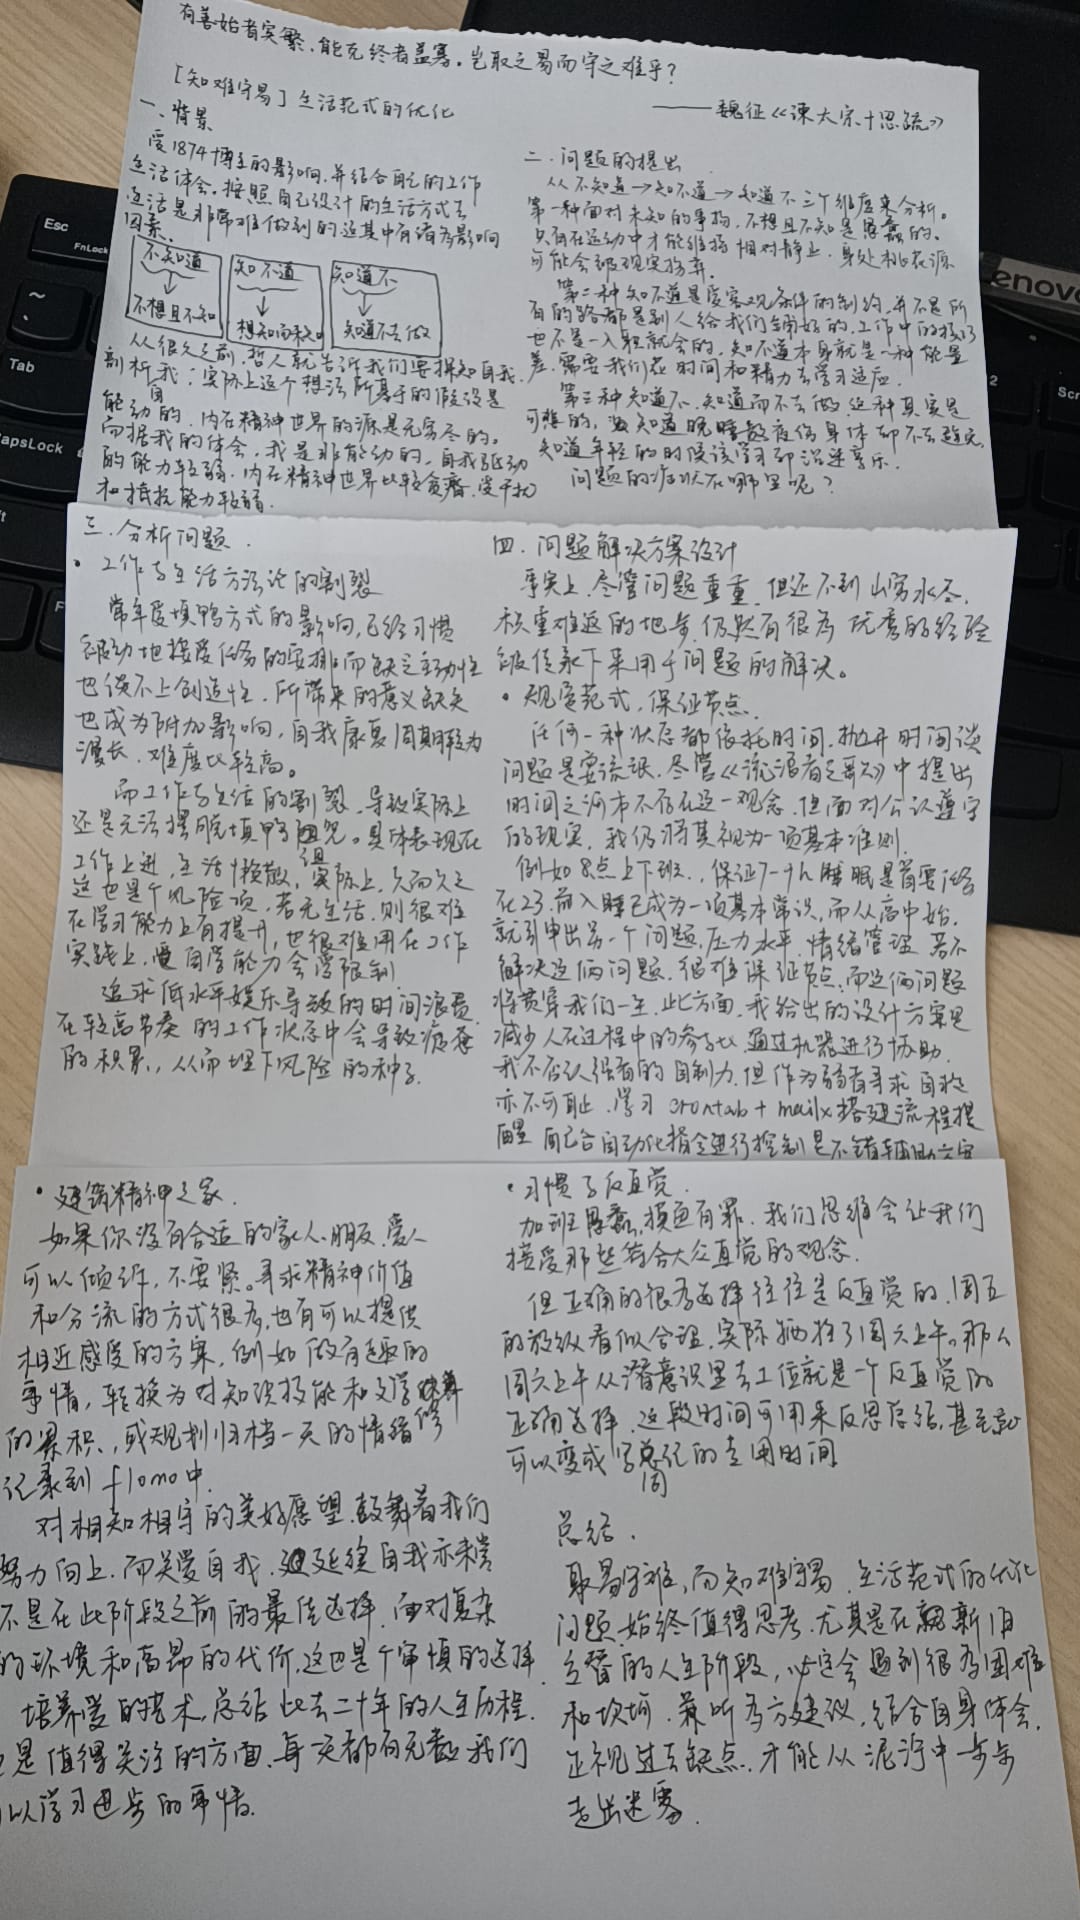 有善始者实繁,能克终者盖寡。岂取之易而守之难乎?
——魏征《谏太宗十思疏》
[知难守易]生活范式的优化
一、背景
受1874博主的影响,并结合自己的工作
生活体会。按照自己设计的生活方式去
生活是非常难做到的这其中有诸多影响
因素、
不知道 知不道 知道不
不想且不知 想知而未知 知道不去做
从很久之前,哲人就告诉我们要探知自我、
剖析自我;实际上这个想法所基于的假设是
能动的、内在精神世界的源是无穷尽的。
而据我的体会,我是非能动的,自我驱动
的能力较弱、内在精神世界比较贫瘠、受干扰
和抵抗能力较弱.
二、问题的提出
从不知道→知不道→知道不三个维度来分析。
第一种面对未知的事物,不想且不知是愚蠢的。
只有在运动中才能维持相对静止、身处桃花源
可能会被现实抛弃.
第二种知不道是受客观条件的制约,并不是所
有的路都是别人给我们铺好的,工作中的技巧
也不是一入职就会的,知不道本身就是一种能量
差,需要我们在时间和精力去学习适应.
第三种知道不、知道而不去做,这种其实是
可悲的,知道晚睡熬夜伤身体却不去避免
知道年轻的时候该学习却沉迷享乐.
问题的症状在哪里呢?
三、分析问题.
• 工作与生活方法论的割裂
常年受填鸭方式的影响,已经习惯
被动地接受任务的安排,而缺乏主动性
也谈不上创造性,所带来的意义缺失
也成为附加影响,自我康复周期较为
漫长、难度比较高。
而工作与生活的割裂,导致实际上
还是无法摆脱填鸭诅咒。具体表现在
工作上进,生活懒散,但实际上,久而久之
这也是个风险项,若无生活,则很难
在学习能力上有提升,也很难用在工作
实践上,自学能力会受限制
追求低水平娱乐导致的时间浪费
在较高节奏的工作状态中会导致疲惫
的积累,从而埋下风险的种子.
四、问题解决方案设计
事实上,尽管问题重重,但还不到山穷水尽,
积重难返的地步,仍然有很多优秀的经验
被传承下来用于问题的解决。
• 规定范式,保证节点
任何一种状态都依托时间,抛开时间谈
问题是耍流氓,尽管《流浪者之歌》中提出
时间之河本不存在这一观念,但面对公认遵守
的现实,我仍将其视为一项基本准则.
例如8点上下班,保证7-9h睡眠是首要任务
在23前入睡已成为一项基本常识,而从高中始,
就引申出另一个问题,压力水平、情绪管理 若不
解决这俩问题,很难保证节点,而这俩问题
将贯穿我们一生,此方面,我给出的设计方案是
减少人在过程中的参与,通过机器进行协助.
我不否认强者的自制力,但作为弱者寻求自救
亦不可耻.学习crontab+mailx搭建流程提
醒 自己合自动化指令进行控制是不错辅助方案
• 建筑精神之家.
如果你没有合适的家人、朋友、爱人
可以倾诉,不要紧。寻求精神价值
和分流的方式很多,也有可以提供
相近感受的方案,例如做有趣的
事情,转换为对知识技能和文学修养
的累积,或规划归档一天的情绪
记录到flomo中.
对相知相守的美好愿望,鼓舞着我们
努力向上,而关爱自我,延续自我亦未尝
不是在此阶段之前的最佳选择,面对复杂
的环境和高昂的代价,这也是个审慎的选择.
培养爱的艺术,总结此去二十年的人生历程.
是值得关注的方面,每天都有无数我们
以学习进步的事情.
• 习惯了反直觉.
加班愚蠢,摸鱼有罪.我们思维会让我们
接受那些符合大众直觉的观念.
但正确的很多选择往往是反直觉的,周五
的放纵看似合理,实际牺牲了周六上午。那么
周六上午从潜意识里去工位就是一个反直觉的
正确选择.这段时间可用来反思总结,甚至就
可以变成写周总记的专用时间
总结.
取易守难,而知难守易.生活范式的优化
问题始终值得思考.尤其是在新旧
交替的人生阶段,必定会遇到很多困难
和坎坷.兼听多方建议,结合自身体会.
正视过去缺点.才能从泥泞中一步步
走出迷雾.
Esc
FnLock
Tab
CapsLock
enovo